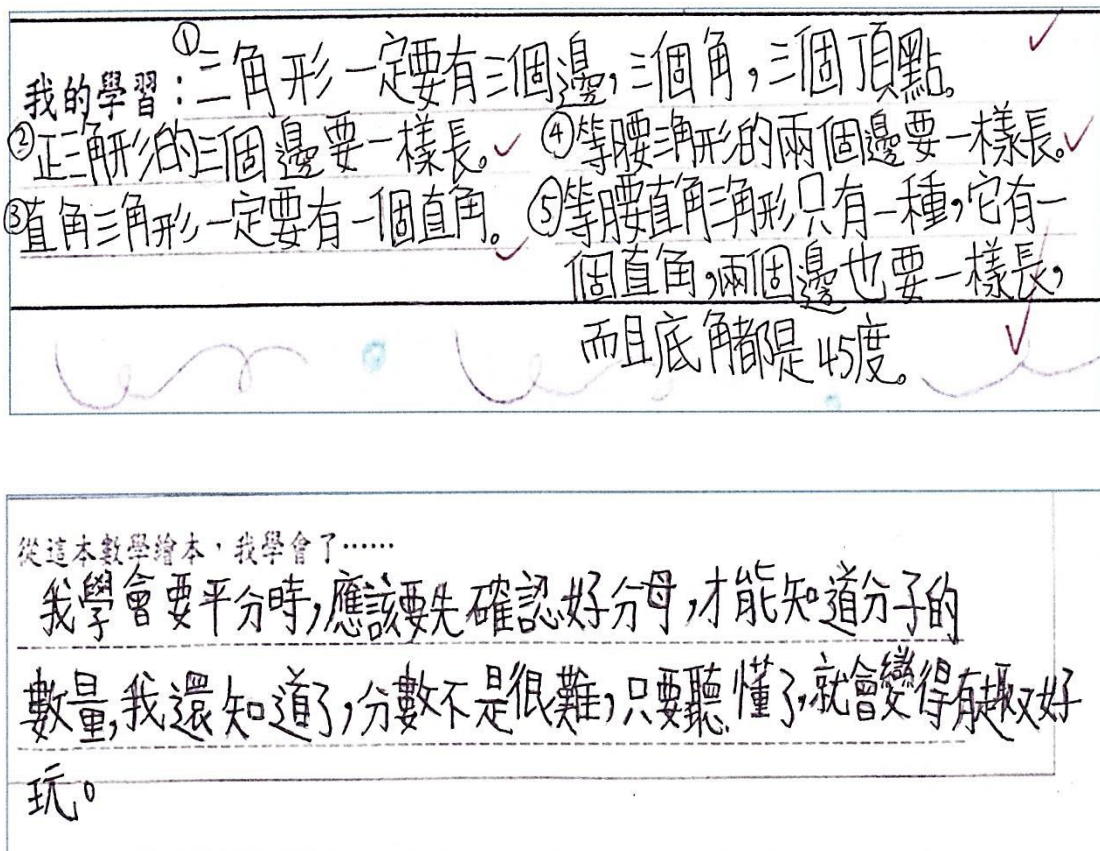 我的學習：①三角形一定要有三個邊，三個角，三個頂點。
②正三角形的三個邊要一樣長。
③直角三角形一定要有一個直角。
④等腰三角形的兩個邊要一樣長。
⑤等腰直角三角形只有一種，它有一
個直角，兩個邊也要一樣長，
而且底角都是45度。
從這本數學繪本，我學會了……
我學會要平分時，應該要先確認好分母，才能知道分子的
數量，我還知道了，分數不是很難，只要聽懂了，就會變得有趣又好
玩。